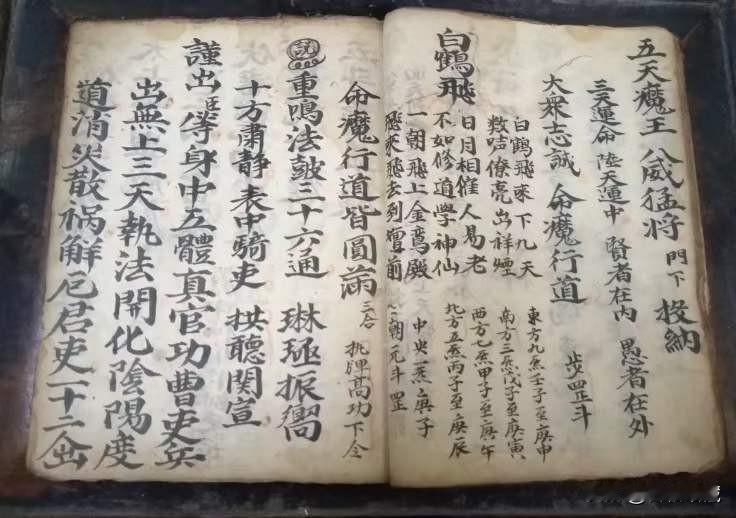 五天魔王 八威猛将 門下 投納
三天運命 陸天運中 賢者在内 愚者在外
大衆志誠 命魔行道 步罡斗
白鶴飛
白鶴飛來下九天 東方九炁壬子至庚申
数咭僚亮出祥煙 南方三炁戊子至庚寅
日月相催人易老 西方七炁甲子至庚午
不如修道學神仙 北方五炁丙子至庚辰
一朝飛上金鸞殿 中央一炁庚子
飛來飛去到壇前 朝元斗罡
命魔行道皆圓滿 三合 執牌高功下令
說 重鳴法鼓三十六通 琳瑯振嚮
十方肅静 表中騎吏 拱聽関宣
謹出臣等身中五體真官功曹吏兵
出無上三天執法開化陰陽度
道消災散禍解厄君吏一十二